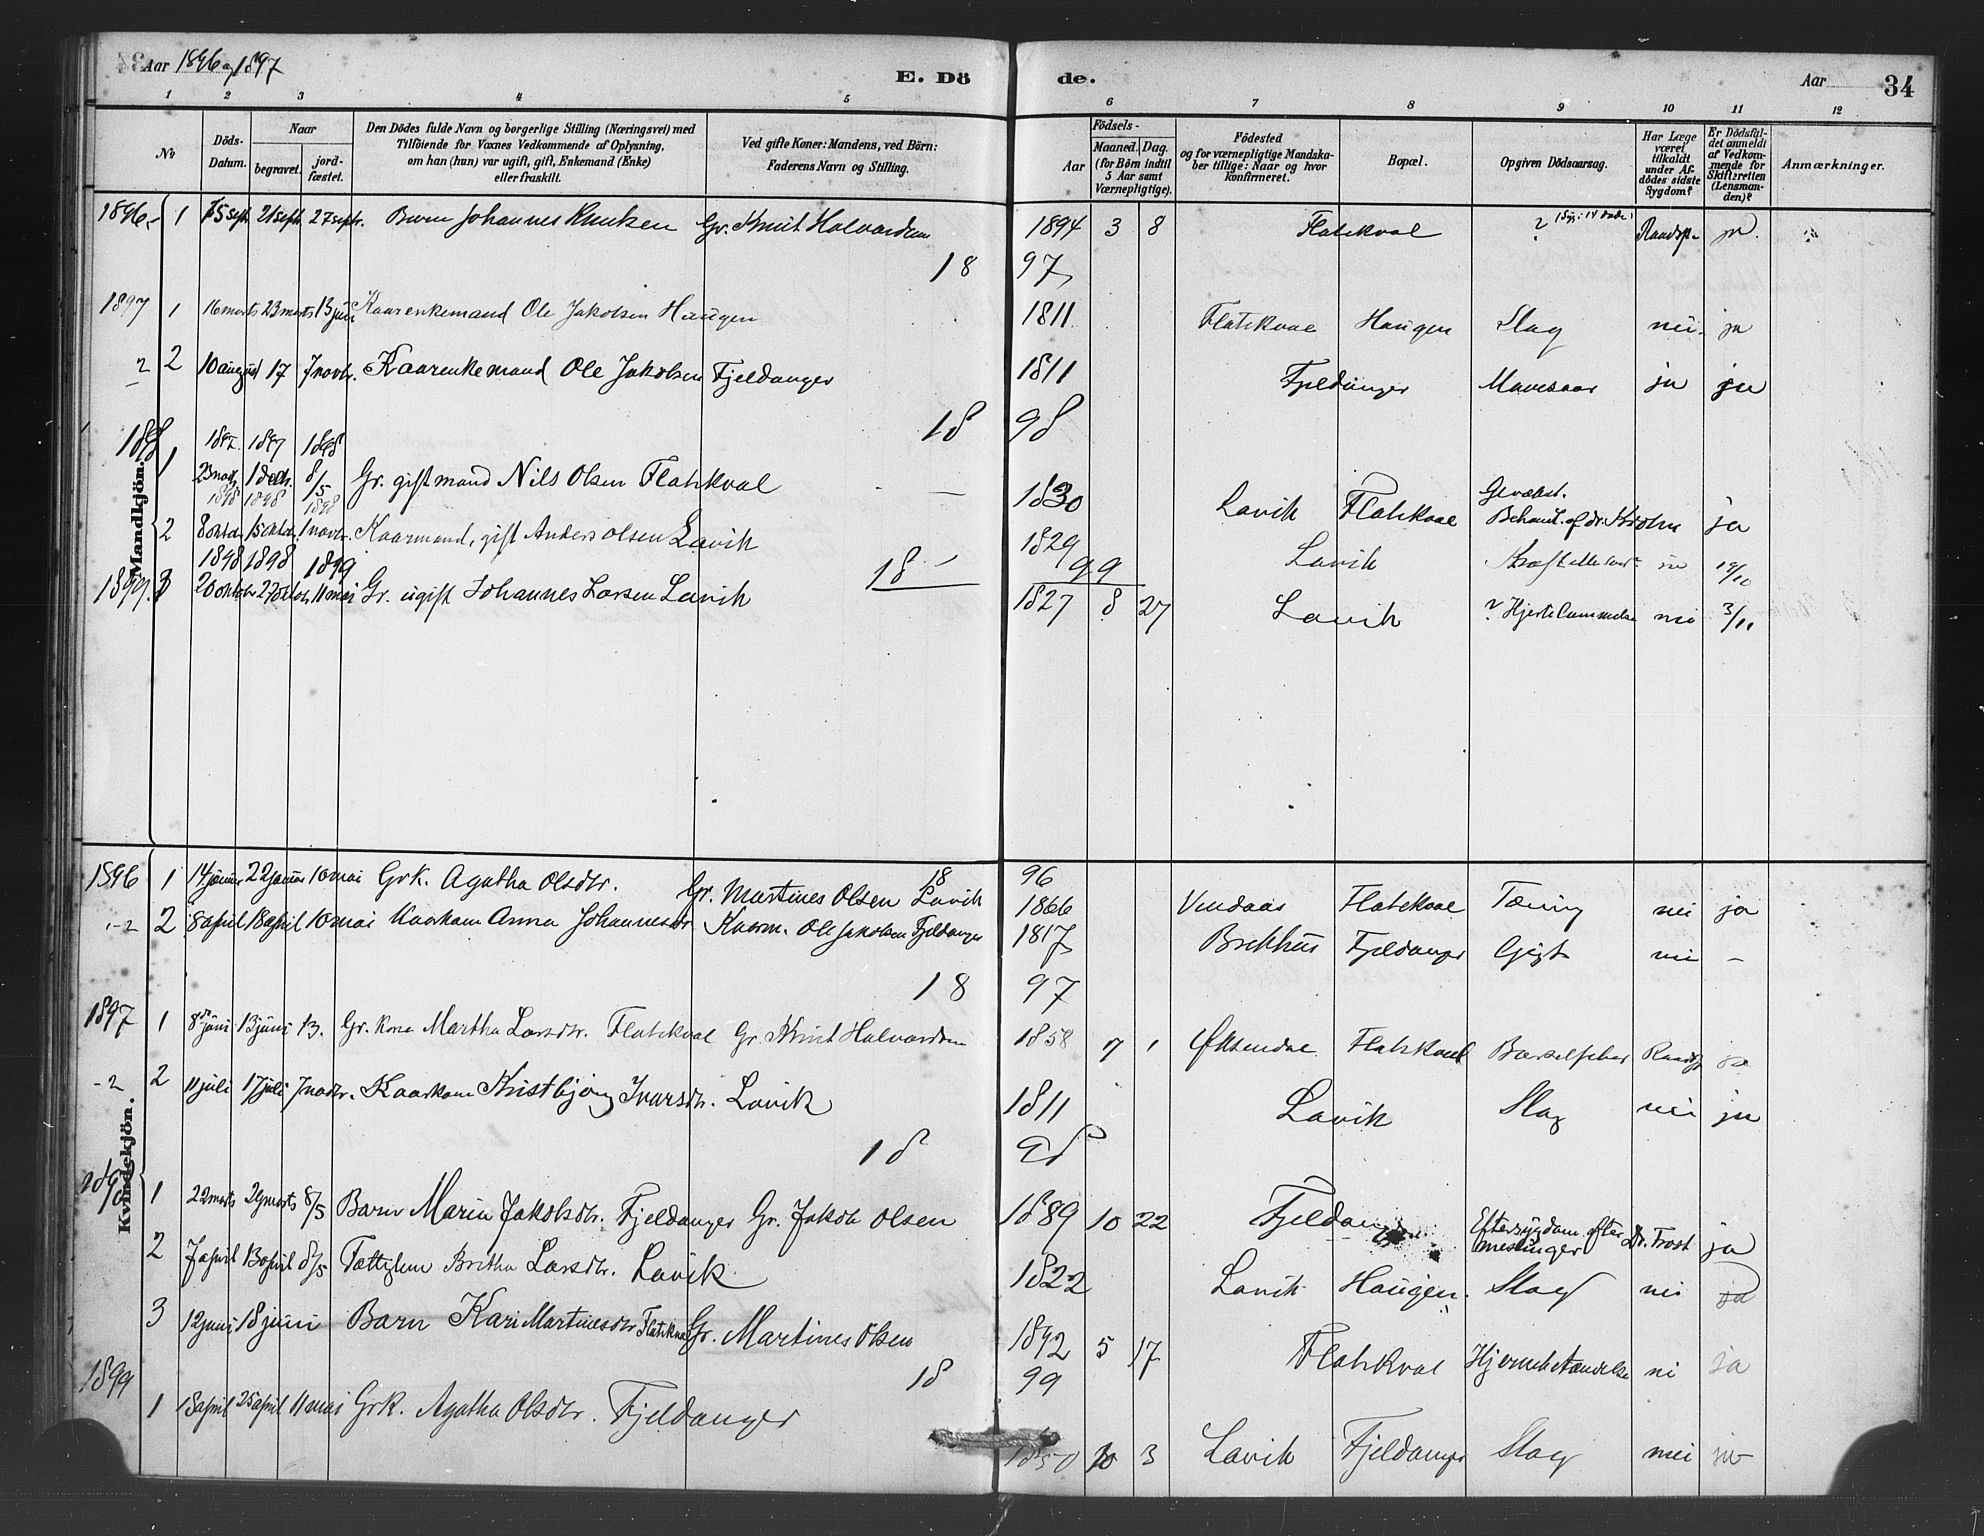 Aar 1896 og 1897
E. Dö de.
Aar 34
1 2 3 4 5 6 7 8 9 10 11 12
No
Döds-Datum.
Naar
begravet.
jord-fæstet.
Den Dödes fulde Navn og borgerlige Stilling (Næringsvei) med
Tilföiende for Voxnes Vedkommende af Oplysning,
om han (hun) var ugift, gift, Enkemand (Enke)
eller fraskilt.
Ved gifte Koner: Mandens, ved Börn:
Faderens Navn og Stilling.
Födsels-
Aar
Maaned. Dag.
(for Börn indtil
5 Aar samt
Værnepligtige).
Födested
og for værnepligtige Mandska-
ber tillige: Naar og hvor
konfirmeret.
Bopæl.
Opgiven Dödsaarsag.
Har Læge
været
tilkaldt
under Af-
dödes sidste
Sygdom?
Er Dödsfal-
det anmeldt
af Vedkom-
mende for
Skifteretten
(Lensman-
den)?
Anmærkninger.
Mandkjön.
1896 1 15 sept. 21 sept. 27 sept. Barn Johannes Knutsen Gr. Knut Halvardsen 1894 3 8 Flatekval ? ja
18 97
1897 1 16 marts 23 marts 13 juni Kaarenkemand Ole Jakobsen Haugen 1811 Flatekval Haugen Slag nei ja
2 2 10 august 17 7 novbr. Kaarenkemand Ole Jakobsen Fjeldanger 1811 Fjeldanger Mavesaar ja ja
18 98
1898 1897 1897 1898
1 23 nov. 1 decbr. 8/5 Gr. gift mand Nils Olsen Flatekval 1830 Lavik Flatekval Behandl. af dr. ja
1898 1898 1898
2 8 oktobr 15 oktobr 1 novbr. Kaarmand, gift Anders Olsen Lavik 1829 Lavik 19/10
1898 1898 1899 18 99
1899. 3 20 oktobr 27 oktobr 11 mai Gr. ugift Johannes Larsen Lavik 1827 8 27 Lavik ? nei 3/11
Kvindekjön.
18 96
1896 1 14 januar 22 januar 10 mai Grk. Agatha Olsdtr. Gr. Martines Olsen Lavik 1866 Vendaas Flatekval Tæring nei ja
2 2 8 april 18 april 10 mai Kaarkone Anna Johannesdtr Kaarm. Ole Jakobsen Fjeldanger 1817 Brekhus Fjeldanger Gigt nei –
18 97
1897 1 8de juni 13 juni 13. Gr. kone Martha Larsdtr. Flatekval Gr. Knut Halvardsen 1858 7 1 Øksendal Flatekval Barselfeber ja
- 2 2 11 juli 17 juli 7 novbr. Kaarkone Kristbjørg Ivarsdtr. Lavik 1811 Lavik Slag nei ja
18 98
1898 1 22 marts 29 marts 8/5 Barn Maria Jakobsdtr. Fjeldanger Gr. Jakob Olsen 1889 10 22 Fjeldanger Eftersygdom efter meslinger Dr. Trost ja
2 7 april 13 april 8/5 Fattiglem Britha Larsdtr. Lavik 1822 Lavik Haugen Slag nei ja
3 12 juni 18 juni Barn Kari Martinesdtr Flatekval Gr. Martines Olsen 1892 5 17 Flatekval Hjernebetændelse nei ja
1899 18 99
1 18 april 25 april 11 mai Grk. Agatha Olsdtr. Fjeldanger 1850 10 3 Lavik Fjeldanger Slag nei ja